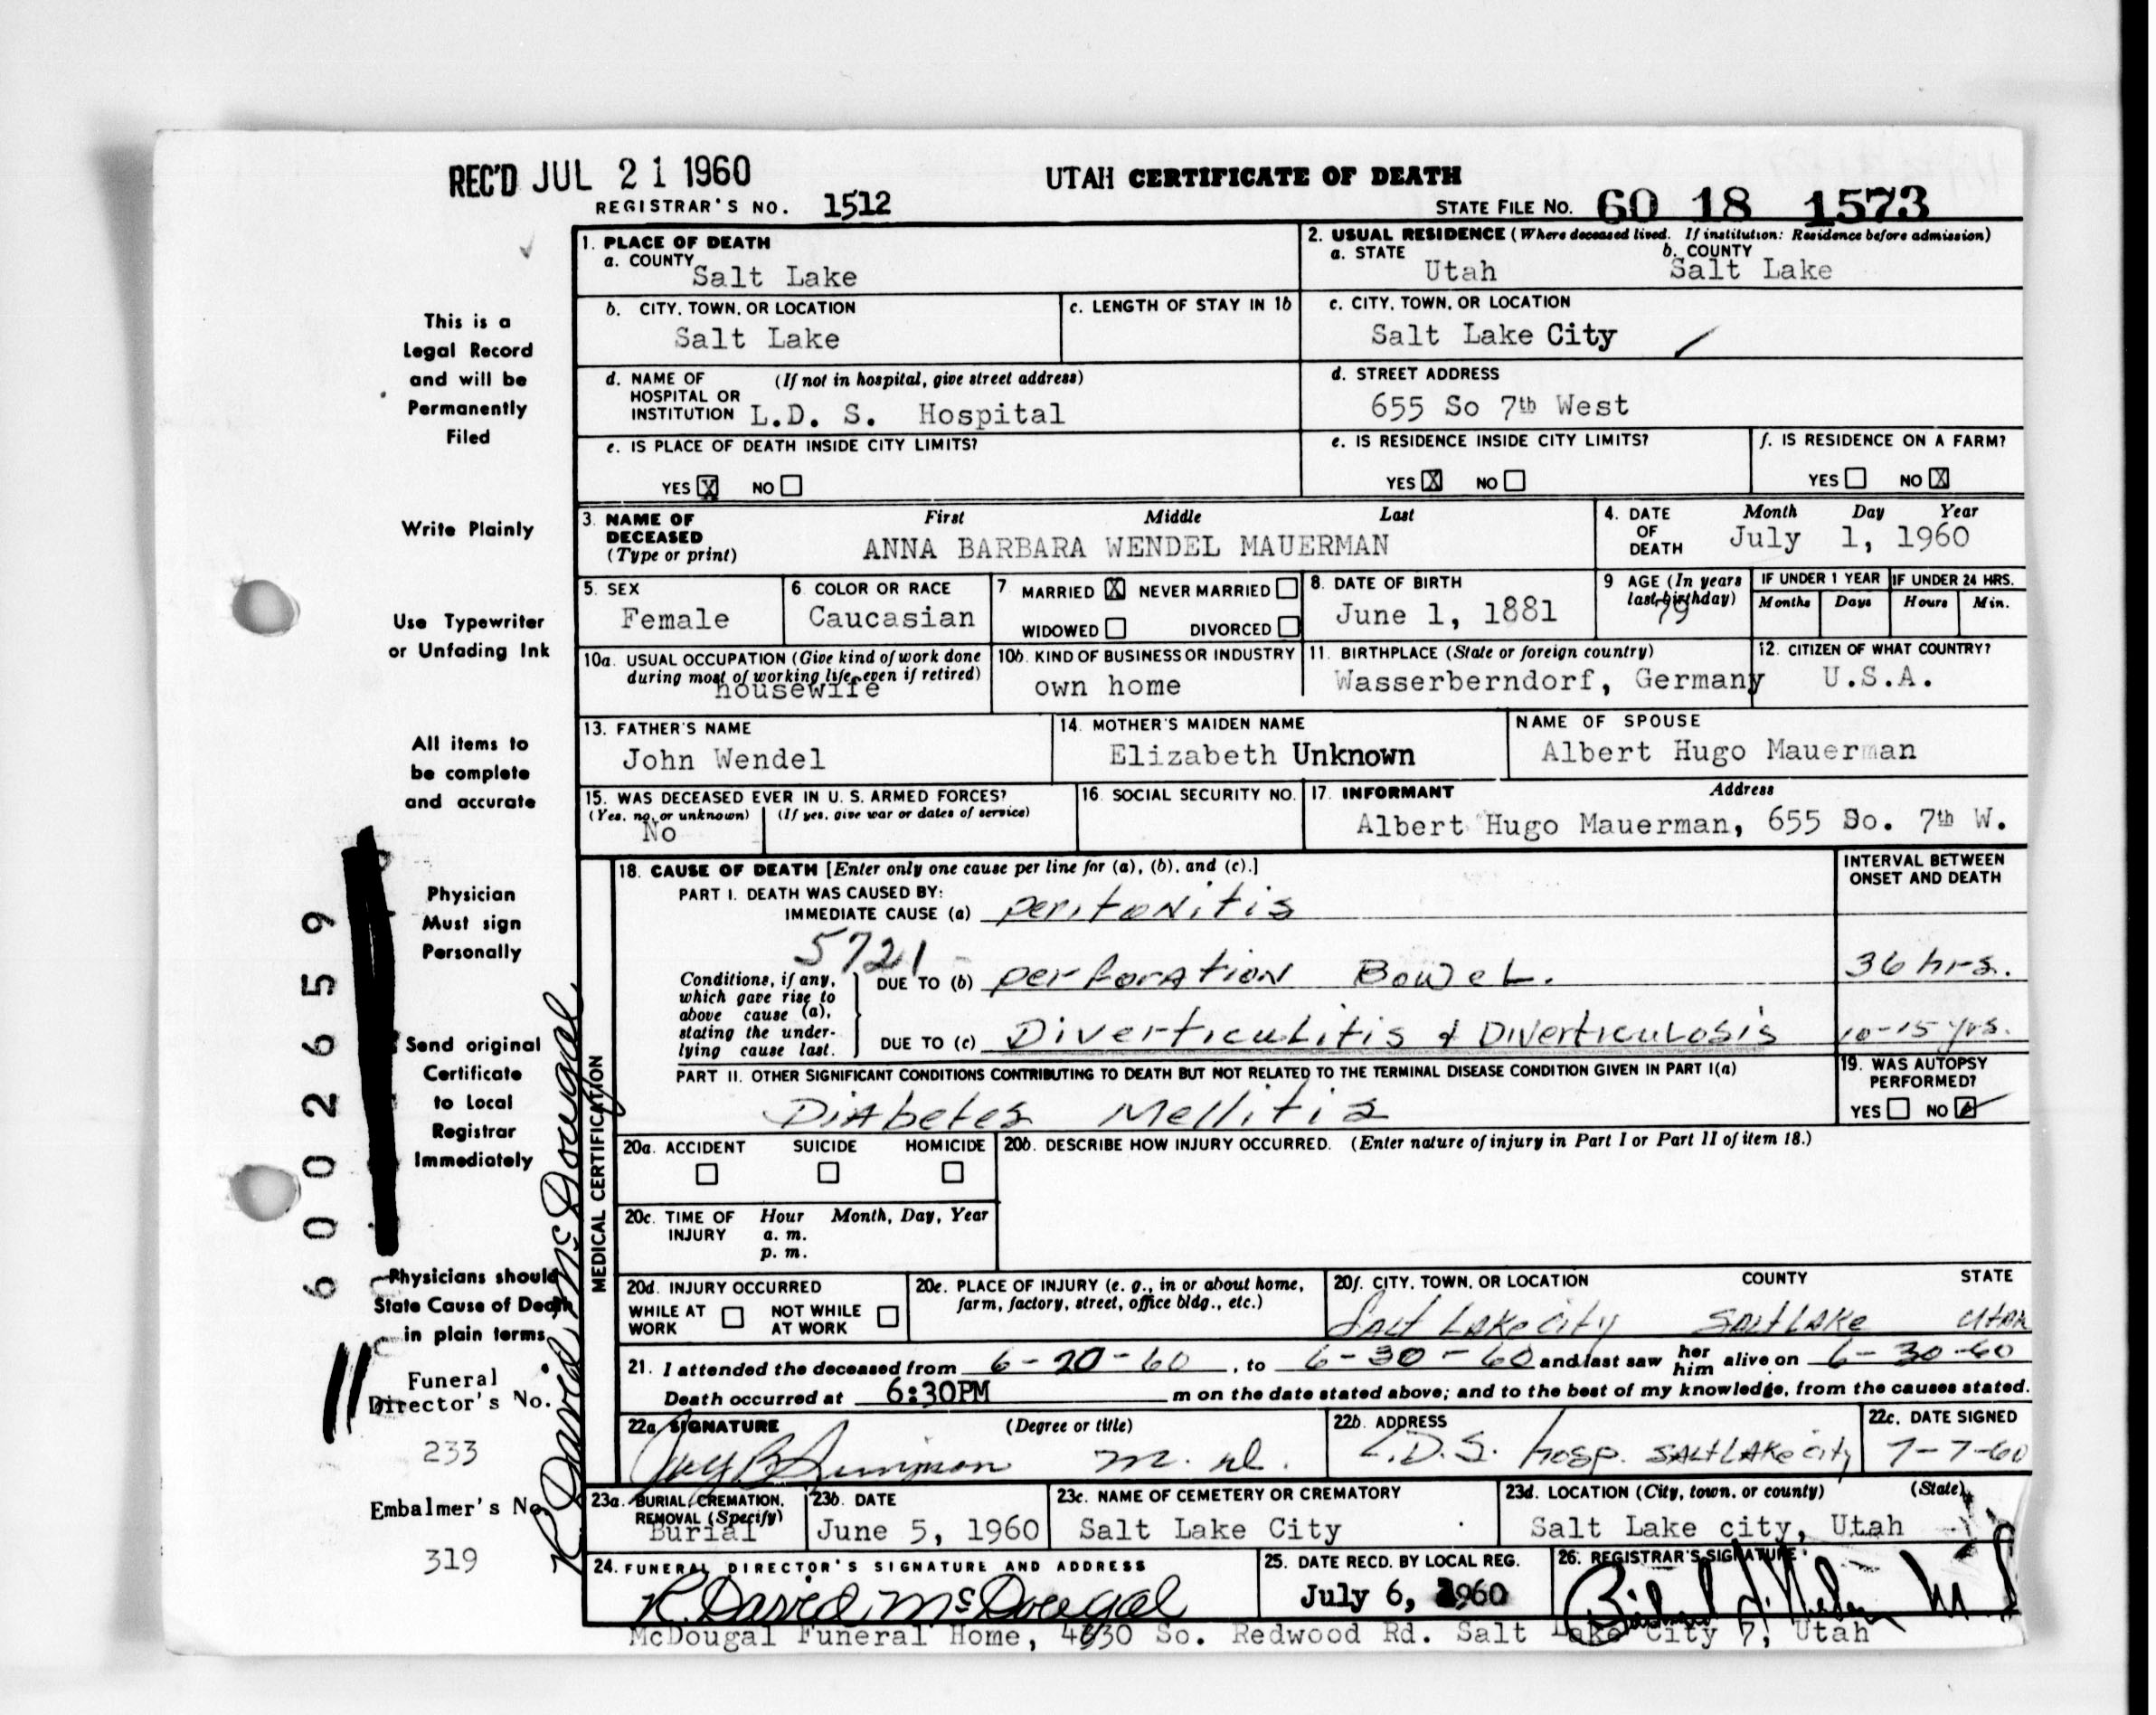 REC'D JUL 21 1960
UTAH CERTIFICATE OF DEATH
REGISTRAR'S NO. 1512
STATE FILE NO. 60 18 1573
This is a
Legal Record
and will be
Permanently
Filed
Write Plainly
Use Typewriter
or Unfading Ink
All items to
be complete
and accurate
Physician
Must sign
Personally
Send original
Certificate
to Local
Registrar
Immediately
Physicians should
State Cause of Death
in plain terms
Funeral
Director's No.
233
Embalmer's No.
319
6002659
R. David McDougal
1. PLACE OF DEATH
a. COUNTY
Salt Lake
2. USUAL RESIDENCE (Where deceased lived. If institution: Residence before admission)
a. STATE b. COUNTY
Utah Salt Lake
b. CITY, TOWN, OR LOCATION
Salt Lake
c. LENGTH OF STAY IN 1b
c. CITY, TOWN, OR LOCATION
Salt Lake City
d. NAME OF (If not in hospital, give street address)
HOSPITAL OR
INSTITUTION L.D. S. Hospital
d. STREET ADDRESS
655 So 7th West
e. IS PLACE OF DEATH INSIDE CITY LIMITS?
YES X NO
e. IS RESIDENCE INSIDE CITY LIMITS?
YES X NO
f. IS RESIDENCE ON A FARM?
YES NO X
3. NAME OF First Middle Last
DECEASED
(Type or print) ANNA BARBARA WENDEL MAUERMAN
4. DATE Month Day Year
OF July 1, 1960
DEATH
5. SEX
Female
6 COLOR OR RACE
Caucasian
7 MARRIED X NEVER MARRIED
WIDOWED DIVORCED
8. DATE OF BIRTH
June 1, 1881
9 AGE (In years
last birthday)
79
IF UNDER 1 YEAR IF UNDER 24 HRS.
Months Days Hours Min.
10a. USUAL OCCUPATION (Give kind of work done
during most of working life, even if retired)
housewife
10b. KIND OF BUSINESS OR INDUSTRY
own home
11. BIRTHPLACE (State or foreign country)
Wasserberndorf, Germany
12. CITIZEN OF WHAT COUNTRY?
U.S.A.
13. FATHER'S NAME
John Wendel
14. MOTHER'S MAIDEN NAME
Elizabeth Unknown
NAME OF SPOUSE
Albert Hugo Mauerman
15. WAS DECEASED EVER IN U. S. ARMED FORCES?
(Yes, no, or unknown) (If yes, give war or dates of service)
No
16. SOCIAL SECURITY NO.
17. INFORMANT Address
Albert Hugo Mauerman, 655 So. 7th W.
MEDICAL CERTIFICATION
18. CAUSE OF DEATH [Enter only one cause per line for (a), (b), and (c).]
INTERVAL BETWEEN
ONSET AND DEATH
PART I. DEATH WAS CAUSED BY:
IMMEDIATE CAUSE (a) peritonitis
5721
Conditions, if any,
which gave rise to
above cause (a),
stating the under-
lying cause last.
DUE TO (b) perforation Bowel. 36 hrs.
DUE TO (c) Diverticulitis & Diverticulosis 10-15 yrs.
PART II. OTHER SIGNIFICANT CONDITIONS CONTRIBUTING TO DEATH BUT NOT RELATED TO THE TERMINAL DISEASE CONDITION GIVEN IN PART I(a)
Diabetes Mellitis
19. WAS AUTOPSY
PERFORMED?
YES NO
20a. ACCIDENT SUICIDE HOMICIDE
20b. DESCRIBE HOW INJURY OCCURRED. (Enter nature of injury in Part I or Part II of item 18.)
20c. TIME OF Hour Month, Day, Year
INJURY a. m.
p. m.
20d. INJURY OCCURRED
WHILE AT NOT WHILE
WORK AT WORK
20e. PLACE OF INJURY (e. g., in or about home,
farm, factory, street, office bldg., etc.)
20f. CITY, TOWN, OR LOCATION COUNTY STATE
Salt Lake city Salt Lake Utah
21. I attended the deceased from 6-20-60, to 6-30-60 and last saw her him alive on 6-30-60
Death occurred at 6:30PM m on the date stated above; and to the best of my knowledge, from the causes stated.
22a. SIGNATURE (Degree or title)
M. D.
22b. ADDRESS
L.D.S. Hosp. Salt Lake city
22c. DATE SIGNED
7-7-60
23a. BURIAL, CREMATION,
REMOVAL (Specify)
Burial
23b. DATE
June 5, 1960
23c. NAME OF CEMETERY OR CREMATORY
Salt Lake City
23d. LOCATION (City, town, or county) (State)
Salt Lake city, Utah
24. FUNERAL DIRECTOR'S SIGNATURE AND ADDRESS
R. David McDougal
25. DATE RECD. BY LOCAL REG.
July 6, 1960
26. REGISTRAR'S SIGNATURE
McDougal Funeral Home, 4330 So. Redwood Rd. Salt Lake City 7, Utah